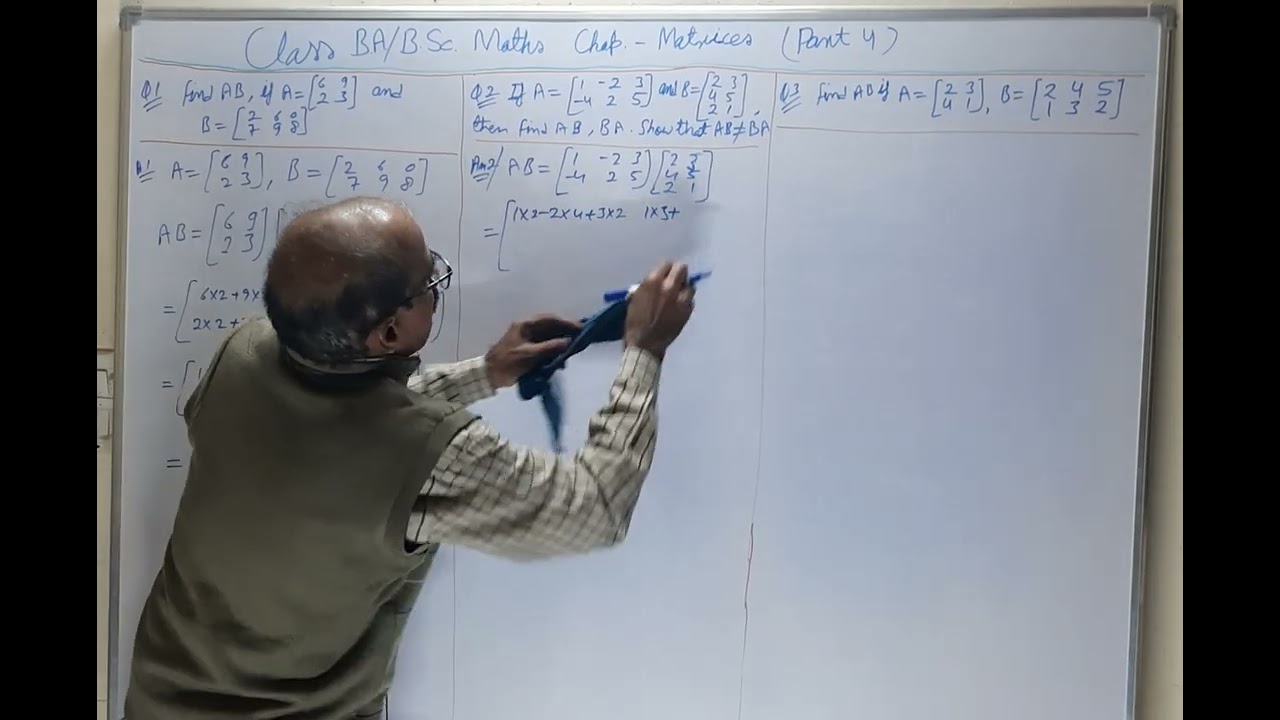 Class BA/B.Sc. Maths Chap. - Matrices (Part 4)
Q1 Find AB, if A = [6 9
2 3] and
B = [2 6 0
7 9 8]
A1 A = [6 9
2 3], B = [2 6 0
7 9 8]
AB = [6 9
2 3] [
= [6x2+9x
2x2+
= [1
=
Q2 If A = [1 -2 3
-4 2 5] and B = [2 3
4 5
2 1],
then find AB, BA. Show that AB ≠ BA
Ans2 AB = [1 -2 3
-4 2 5] [2 3
4 5
2 1]
= [1x2-2x4+3x2 1x3+
Q3 Find AB if A = [2 3
4 1], B = [2 4 5
1 3 2]